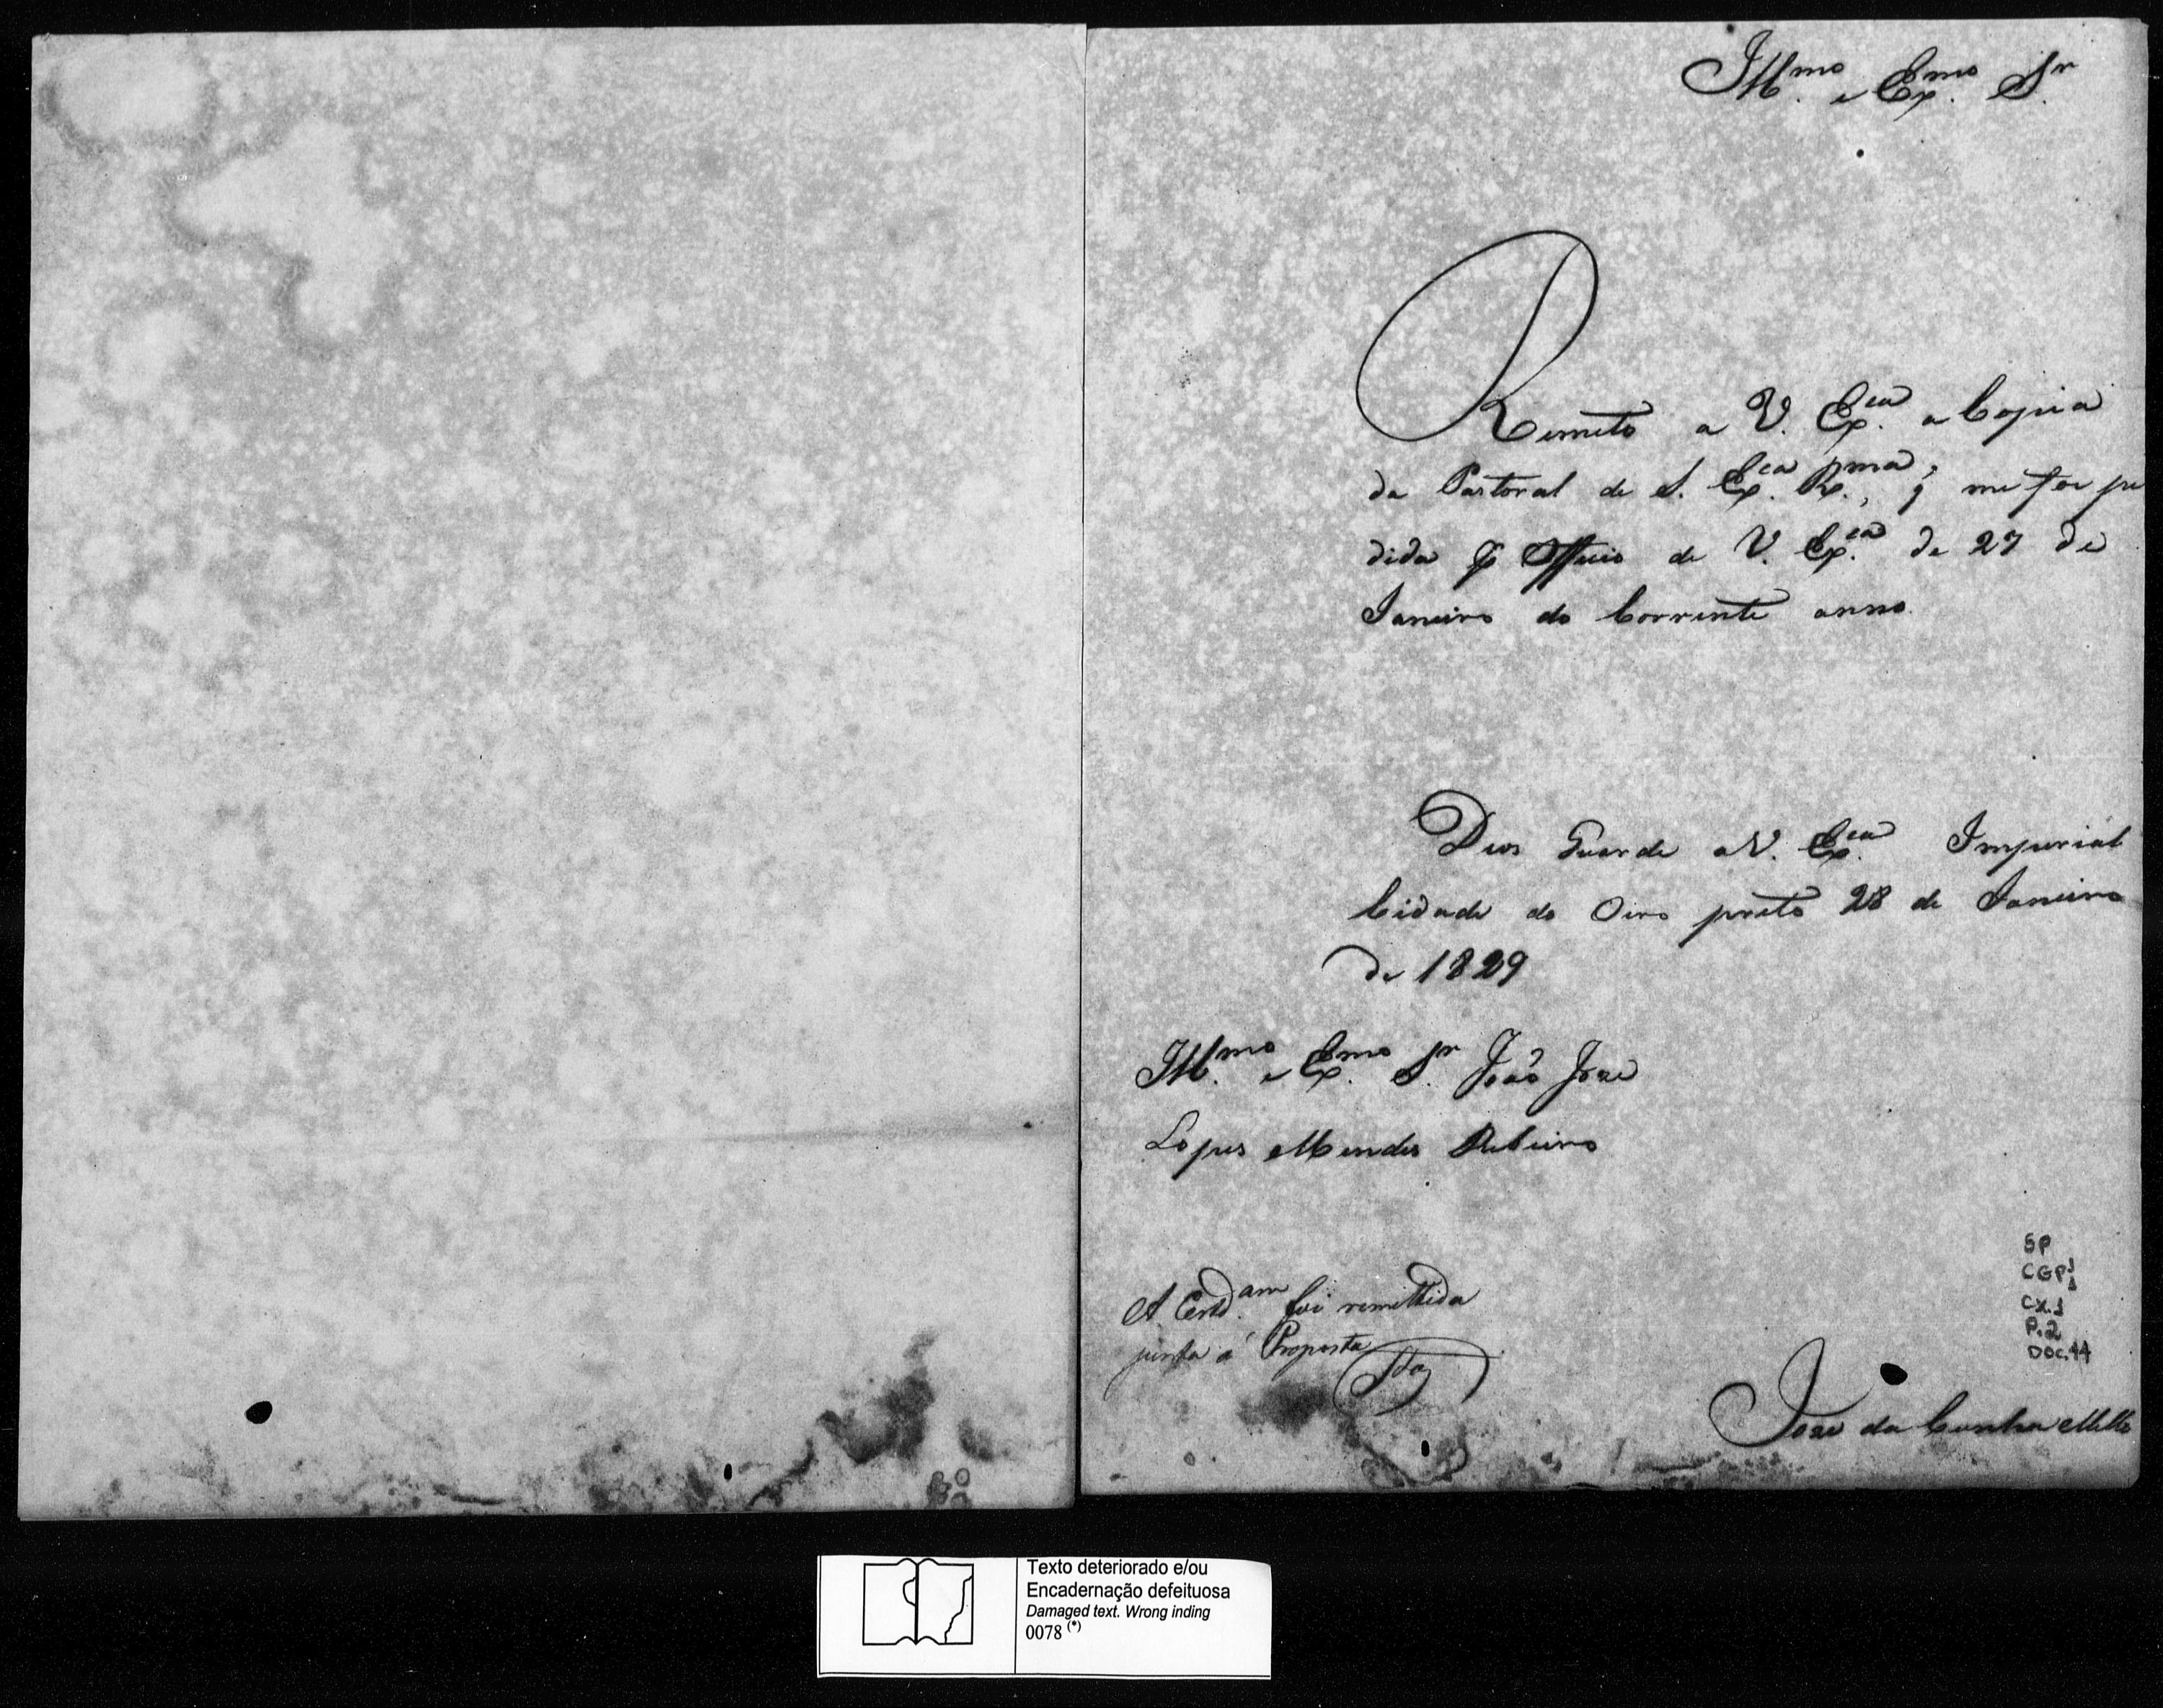 Ill.mo e Ex.mo Sr.
Remeto a V. Ex.cia a Copia
da Pastoral de S. Ex.cia R.ma, q me foi pe
dida p Officio de V. Ex.cia de 27 de
Janeiro do Corrente anno.
Deos Guarde a V. Ex.cia Imperial
Cidade do Oiro preto 28 de Janeiro
de 1829
Ill.mo e Ex.mo Sr. João Joze
Lopes Mendes Ribeiro
A Certd.am foi remettida
junta á Proposta
SP
CGP1
1
CX.1
P.2
DOC.44
Joze da Cunha Mello
Texto deteriorado e/ou
Encadernação defeituosa
Damaged text. Wrong inding
0078 (*)